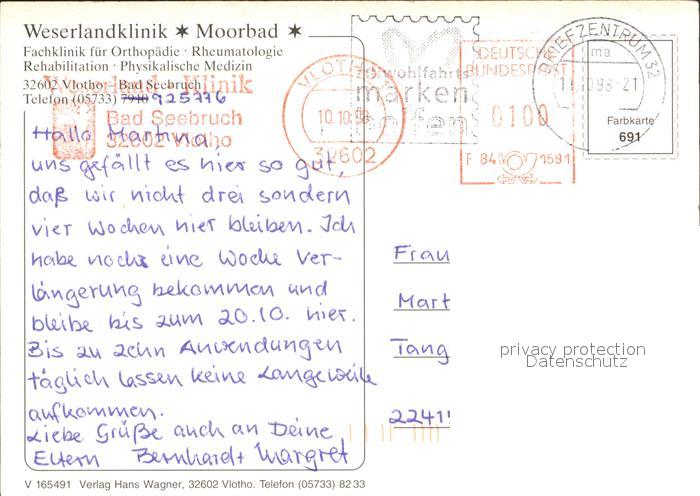 Weserlandklinik ✶ Moorbad ✶
Fachklinik für Orthopädie · Rheumatologie
Rehabilitation · Physikalische Medizin
32602 Vlotho · Bad Seebruch
Telefon (05733) 7910 925376
Weserlandklinik
Bad Seebruch
32602 Vlotho
VLOTHO
10.10.98
32602
wohlfahrts
marken
helfen
DEUTSCHE
BUNDESPOST
0100
F 84 1591
BRIEFZENTRUM 32
ma
-21
Farbkarte
691
Hallo Martina,
uns gefällt es hier so gut,
daß wir nicht drei sondern
vier Wochen hier bleiben. Ich
habe noch eine Woche Ver-
längerung bekommen und
bleibe bis zum 20.10. hier.
Bis zu zehn Anwendungen
täglich lassen keine Langeweile
aufkommen.
Liebe Grüße auch an Deine
Eltern Bernhard + Margret
Frau
Mart
Tang
2241
privacy protection
Datenschutz
V 165491 Verlag Hans Wagner, 32602 Vlotho. Telefon (05733) 82 33